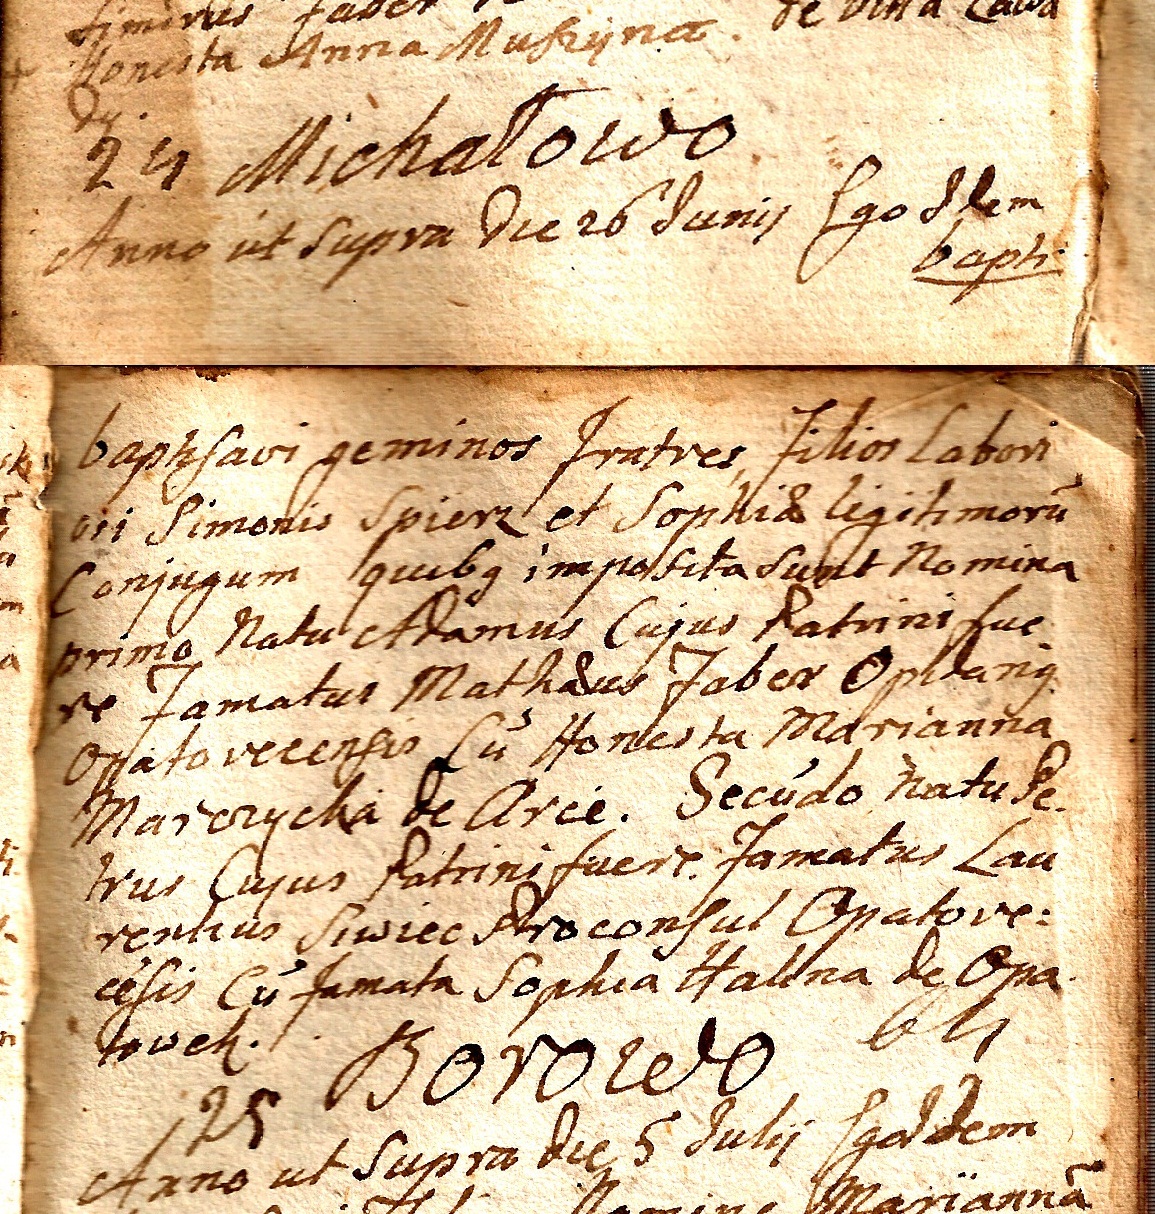 Faber
Honesta Anna Muszyna. de villa
24 Michałowo
Anno ut supra Die 26 Junij Ego Idem
bapti
baptisavi geminos Fratres Filios Labori
osi Simonis Spierz et Sophiæ legitimorū
Conjugum quibq imposita sunt Nomina
primo Natu Adamus Cujus Patrini fue
re Famatus Mathæus Faber
Opatovecensis Cū Honesta Marianna
Marczycha de Arce. Secūdo Natu Pe-
trus Cujus Patrini fuere Famatus Lau
rentius Siwiec Proconsul Opatove:
cēsis Cū famata Sophia Halina de Opa
towek.
64
25 Borowo
Anno ut supra die 5 Julij Ego Idem
Nomine Mariannā